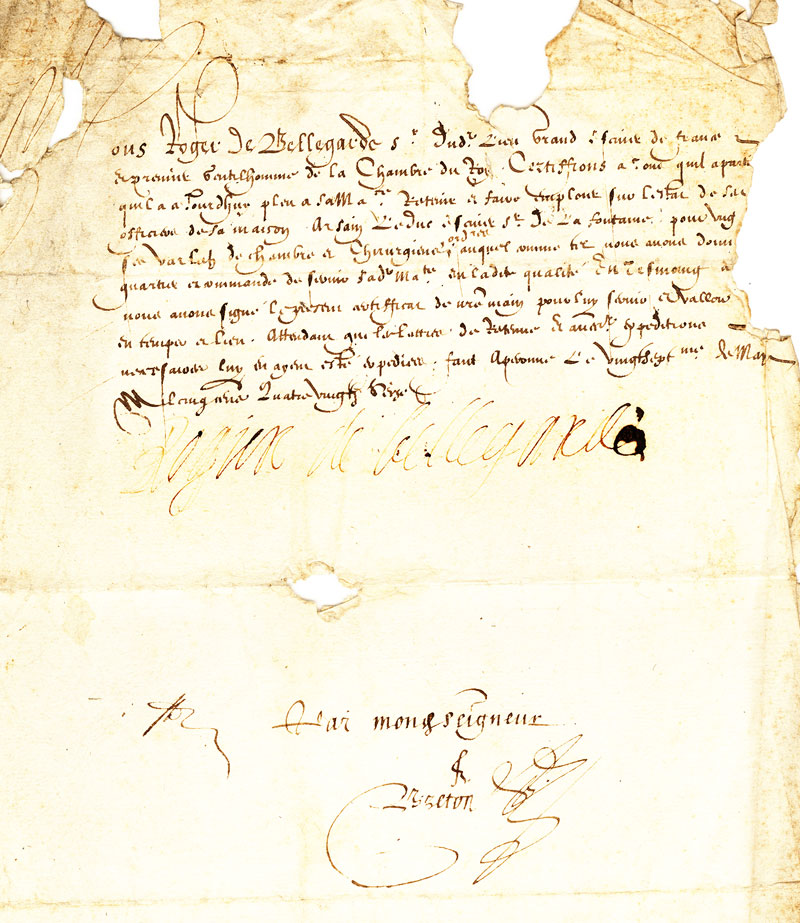 ous Roger de Bellegarde sr dudt lieu grand escuier de france
et premier gentilhomme de la Chambre du Roy Certiffions a tous quil apartiendra
quil a a Jourdhuy pleu a sa Mate Retenir et faire employer sur lestat de ses
officiers de sa maison Arsain Leduc escuier sr de La fontaine pour ung
de ses varletz de chambre et Chirurgiens ordres auquel comme tel nous avons donné
quartier et commandé de servir sadte Mate en ladte qualité En tesmoing de
nous avons signé le present certifficat de nre main pour luy servir et valloir
en temps et lieu. Attendant que les lettres de Retenue et aultres expeditions
necessaires luy en ayent esté expediees. faict A peronne Le vingtsept me de May
Mil cinq cens Quatre vingtz Seize
Rogier de bellegarde
Par monseigneur
Breton